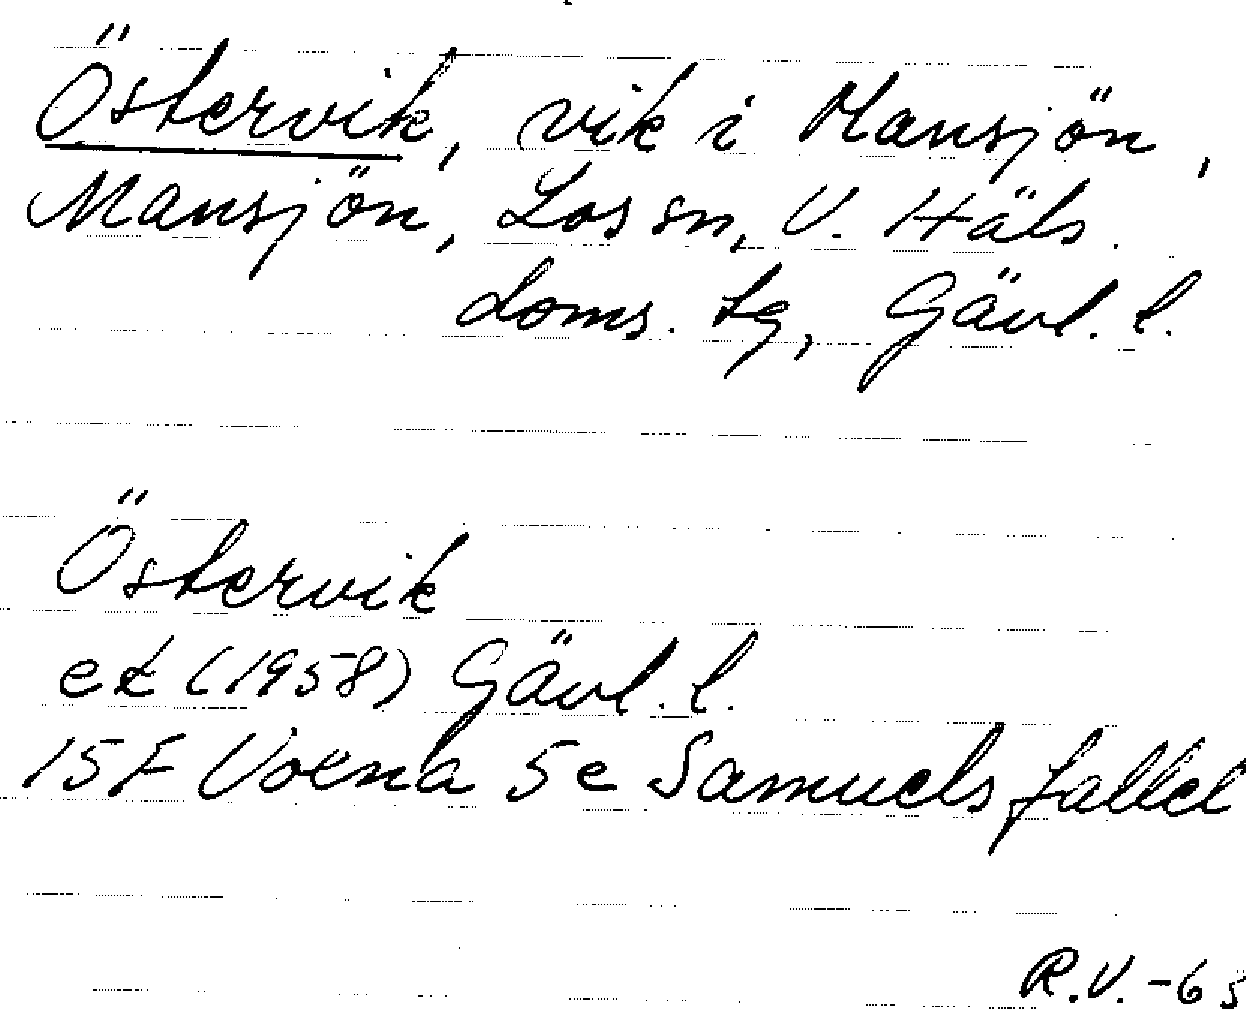 Östervik, vik i Mansjön,
Mansjön, Los sn, V. Häls.
doms. tg, Gävl. l.
Östervik
ek (1958) Gävl. l.
15F Voxna 5e Samuelsfallet
R.V. -63